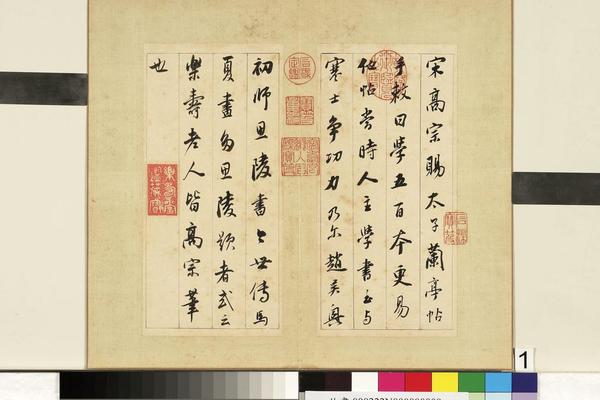 宋高宗賜太子蘭亭帖
手敕曰學五百本更易
他帖當時人主學書至与
寒士争功力乃尔趙吴興
初師思陵書々世傳馬
夏畫多思陵題者或云
樂壽老人皆高宗筆
也
1